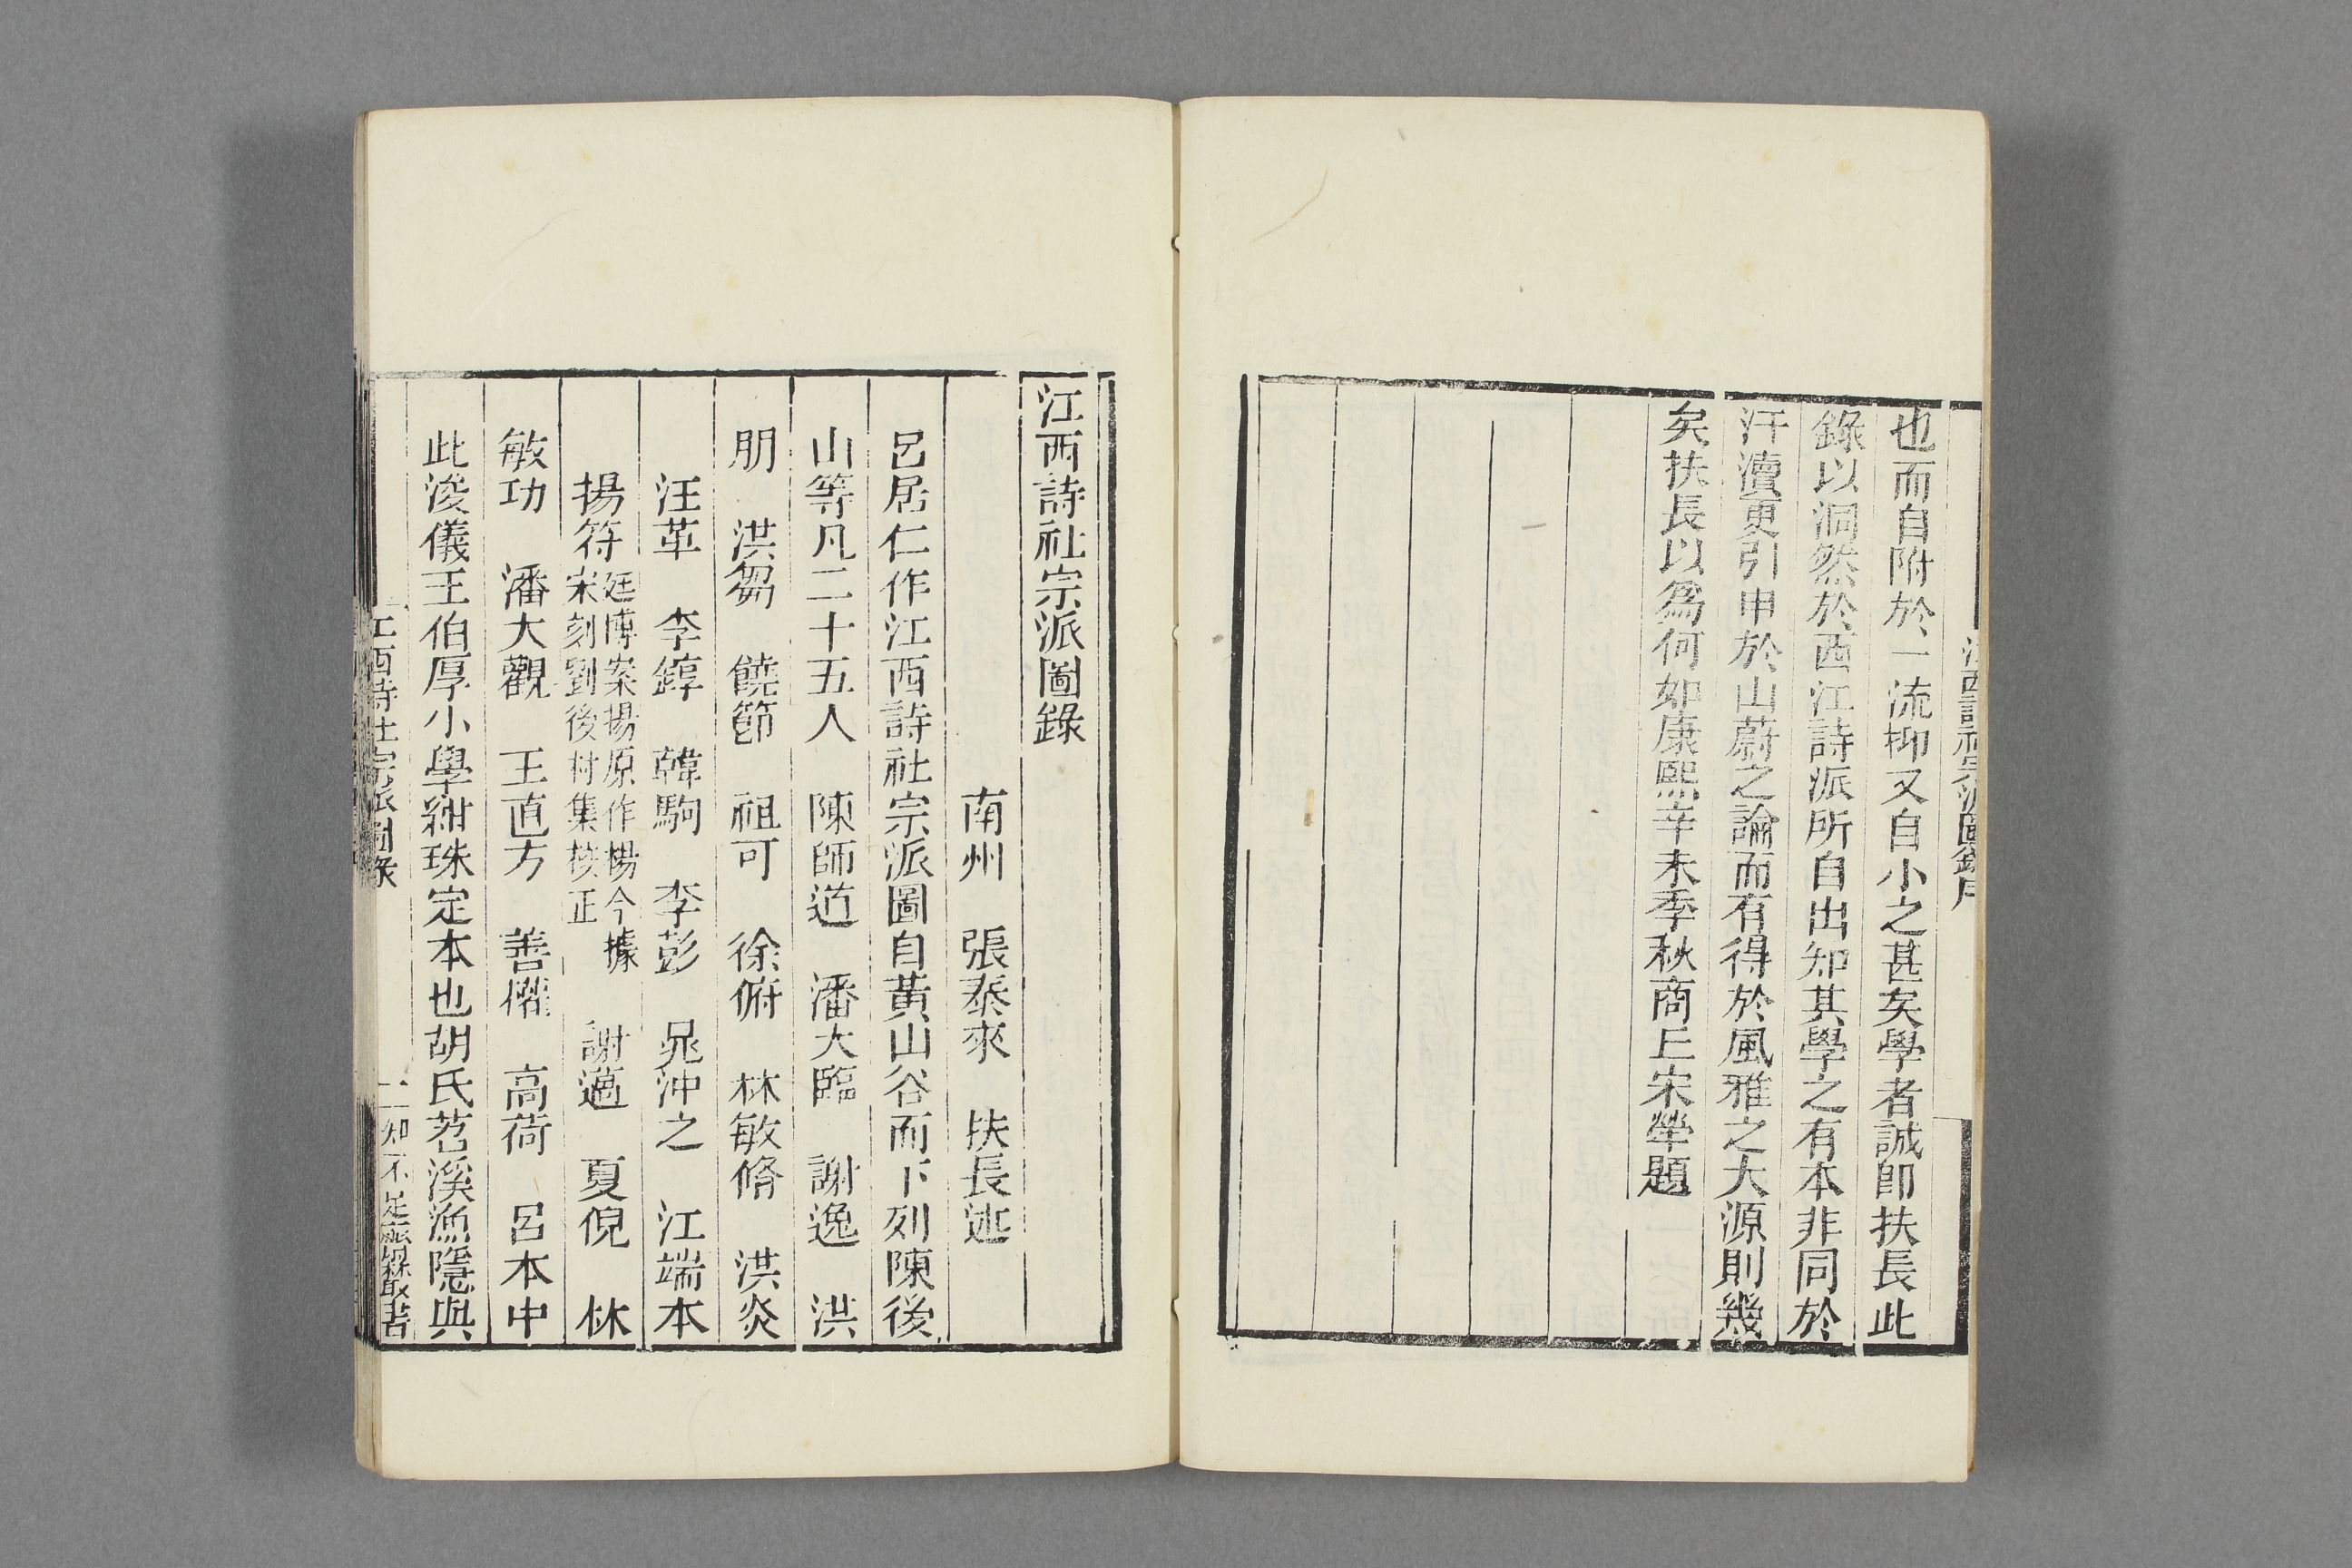 也而自附於一流抑又自小之甚矣學者誠卽扶長此
錄以洞然於西江詩派所自出知其學之有本非同於
汗瀆更引申於山蔚之論而有得於風雅之大源則幾
矣扶長以爲何如康熙辛未季秋商丘宋犖題
江西詩社宗派圖錄
南州　張泰來　扶長述
呂居仁作江西詩社宗派圖自黃山谷而下列陳後
山等凡二十五人　陳師道　潘大臨　謝逸　洪
朋　洪芻　饒節　祖可　徐俯　林敏脩　洪炎
汪革　李錞　韓駒　李彭　晁沖之　江端本
揚符廷博案揚原作楊今據宋刻劉後村集校正　謝薖　夏倪　林
敏功　潘大觀　王直方　善權　高荷　呂本中
此浚儀王伯厚小學紺珠定本也胡氏苕溪漁隱與
江西詩社宗派圖錄　一　知不足齋叢書